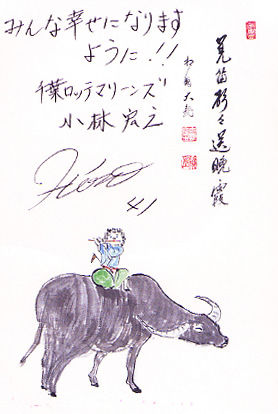 みんな幸せになります
ように!!
千葉ロッテマリーンズ
小林宏之
41
羌笛声々送晩霞